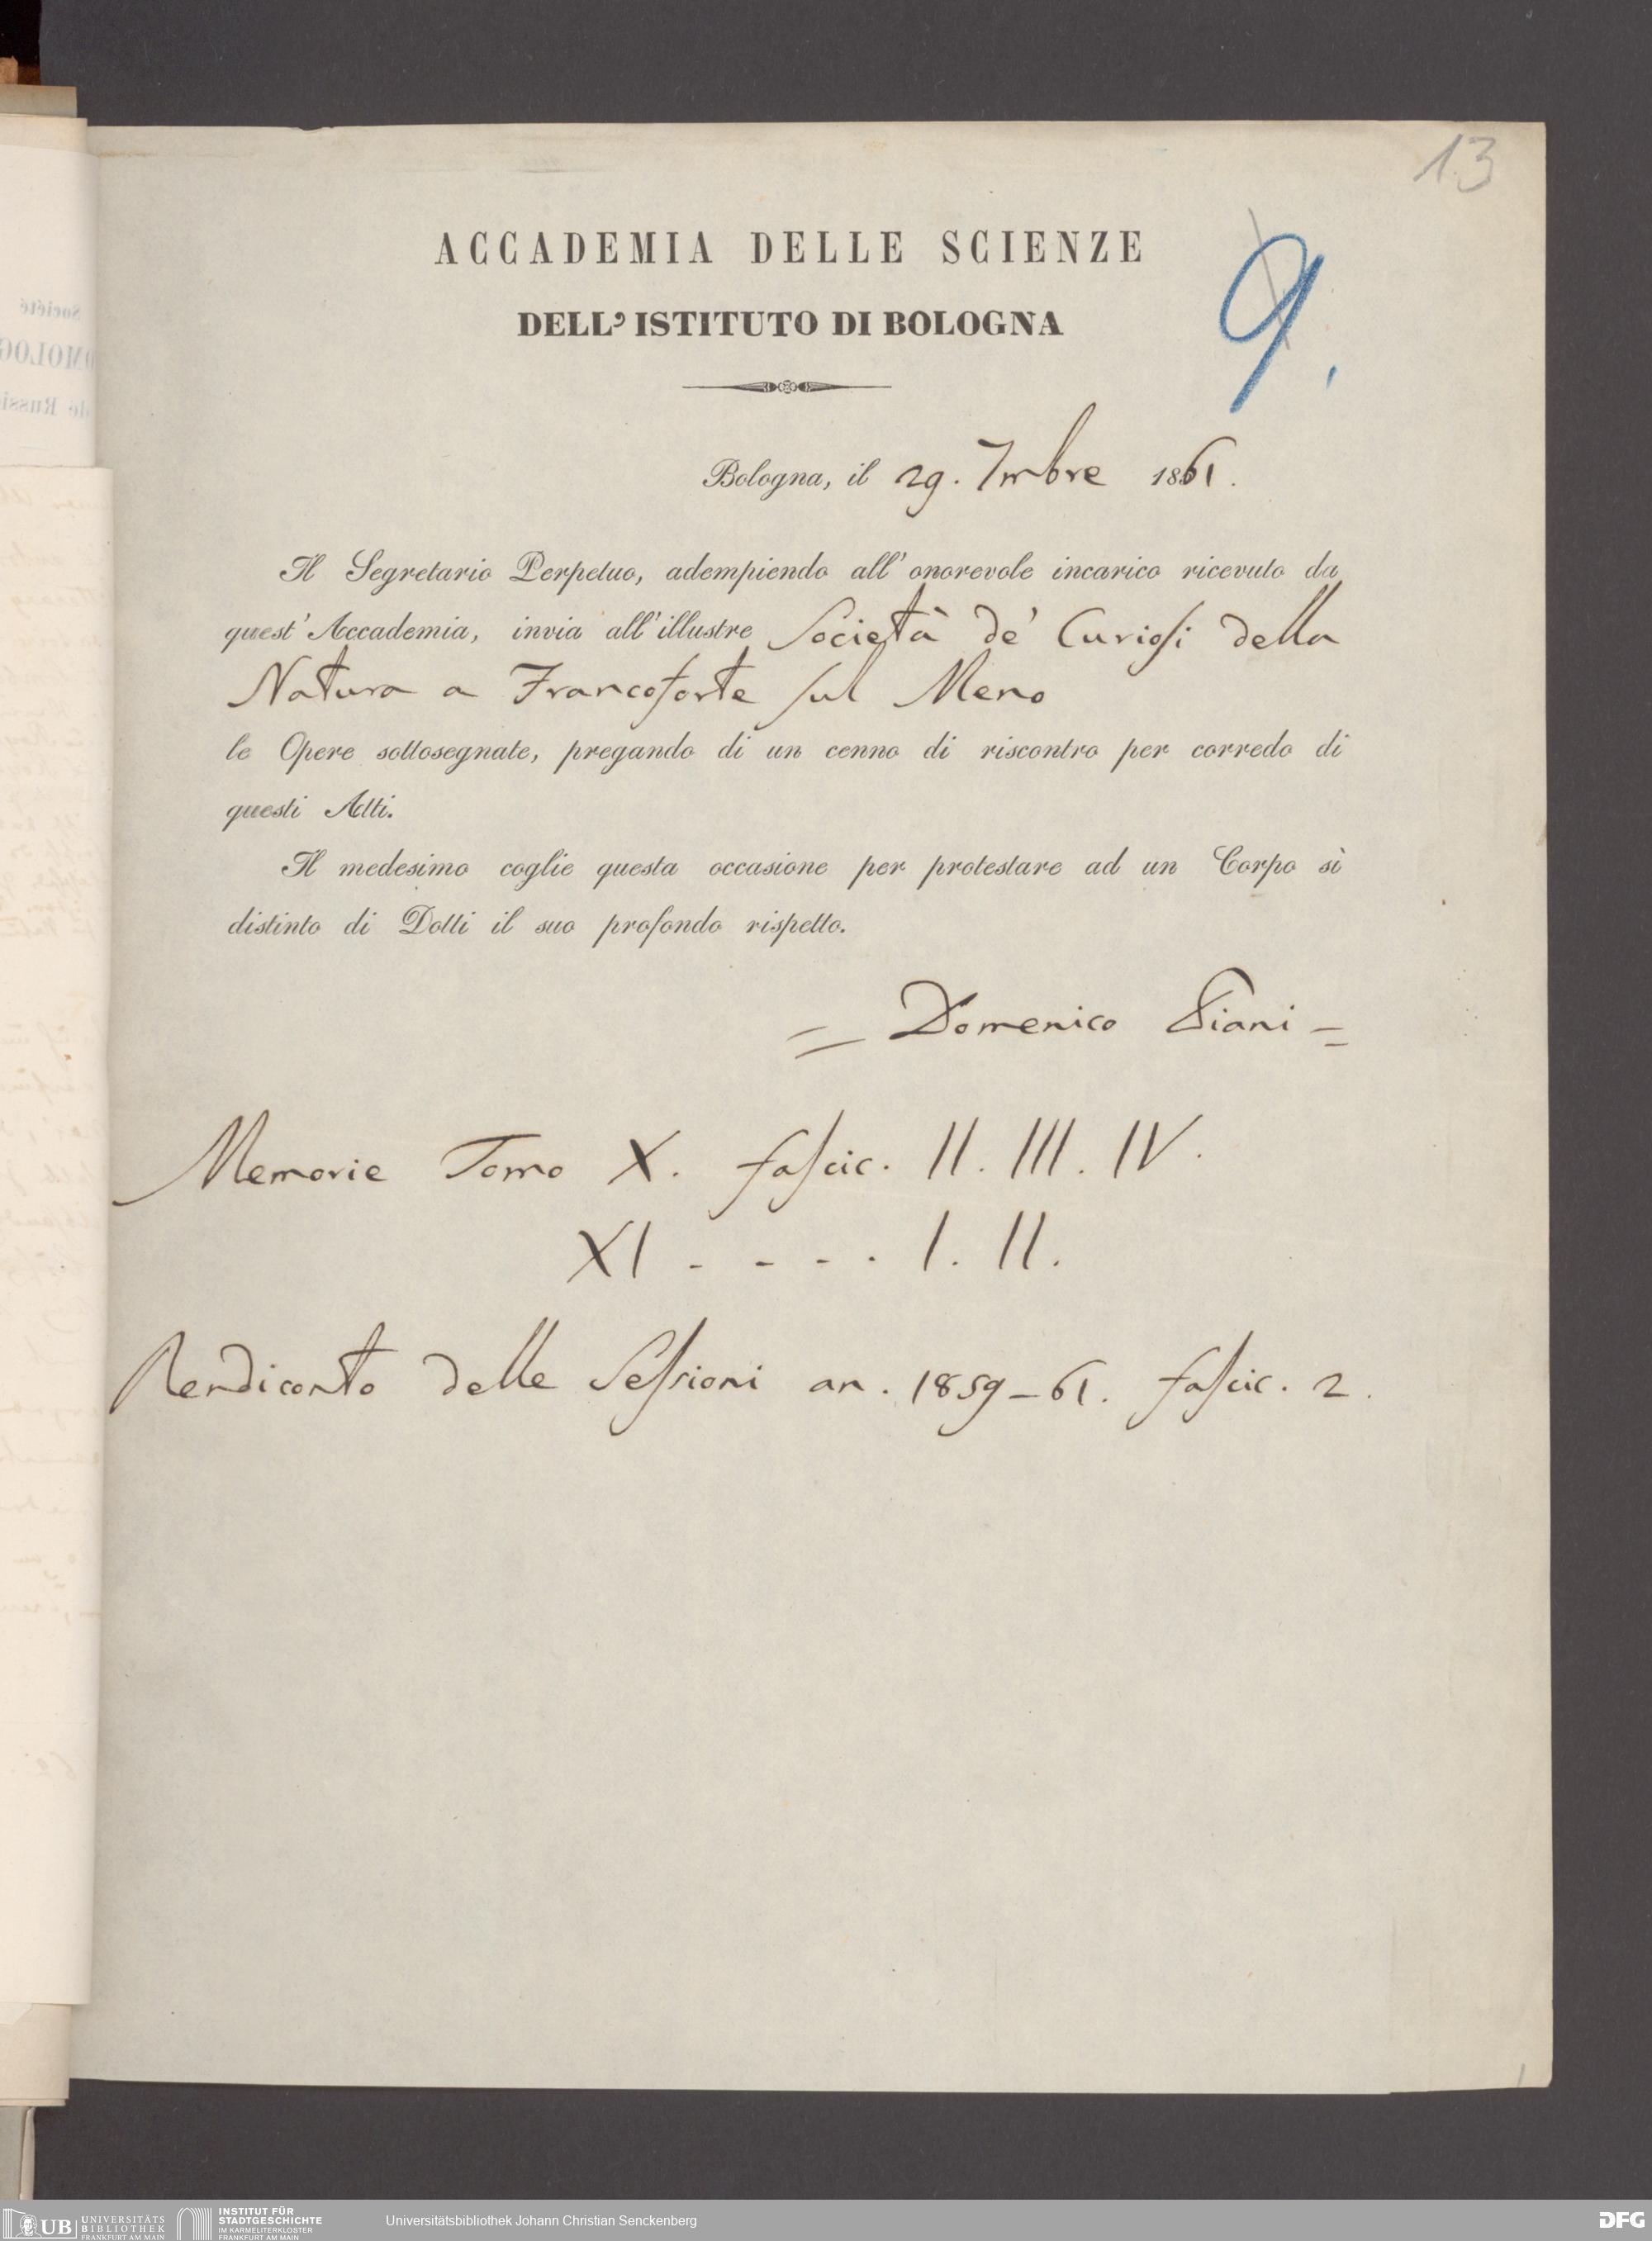 13
ACCADEMIA DELLE SCIENZE
DELL' ISTITUTO DI BOLOGNA
9.
Bologna, il 29. 7mbre 1861.
Il Segretario Perpetuo, adempiendo all' onorevole incarico ricevuto da
quest' Accademia, invia all' illustre Società de' Curiosi della
Natura a Francoforte sul Meno
le Opere sottosegnate, pregando di un cenno di riscontro per corredo di
questi Atti.
Il medesimo coglie questa occasione per protestare ad un Corpo sì
distinto di Dotti il suo profondo rispetto.
= Domenico Piani =
Memorie Tomo X. fascic. II. III. IV.
XI - - - . I. II.
Rendiconto delle Sessioni an. 1859-61. fascic. 2.
Société
de Russie
UB UNIVERSITÄTS
BIBLIOTHEK
FRANKFURT AM MAIN
INSTITUT FÜR
STADTGESCHICHTE
IM KARMELITERKLOSTER
FRANKFURT AM MAIN
Universitätsbibliothek Johann Christian Senckenberg
DFG